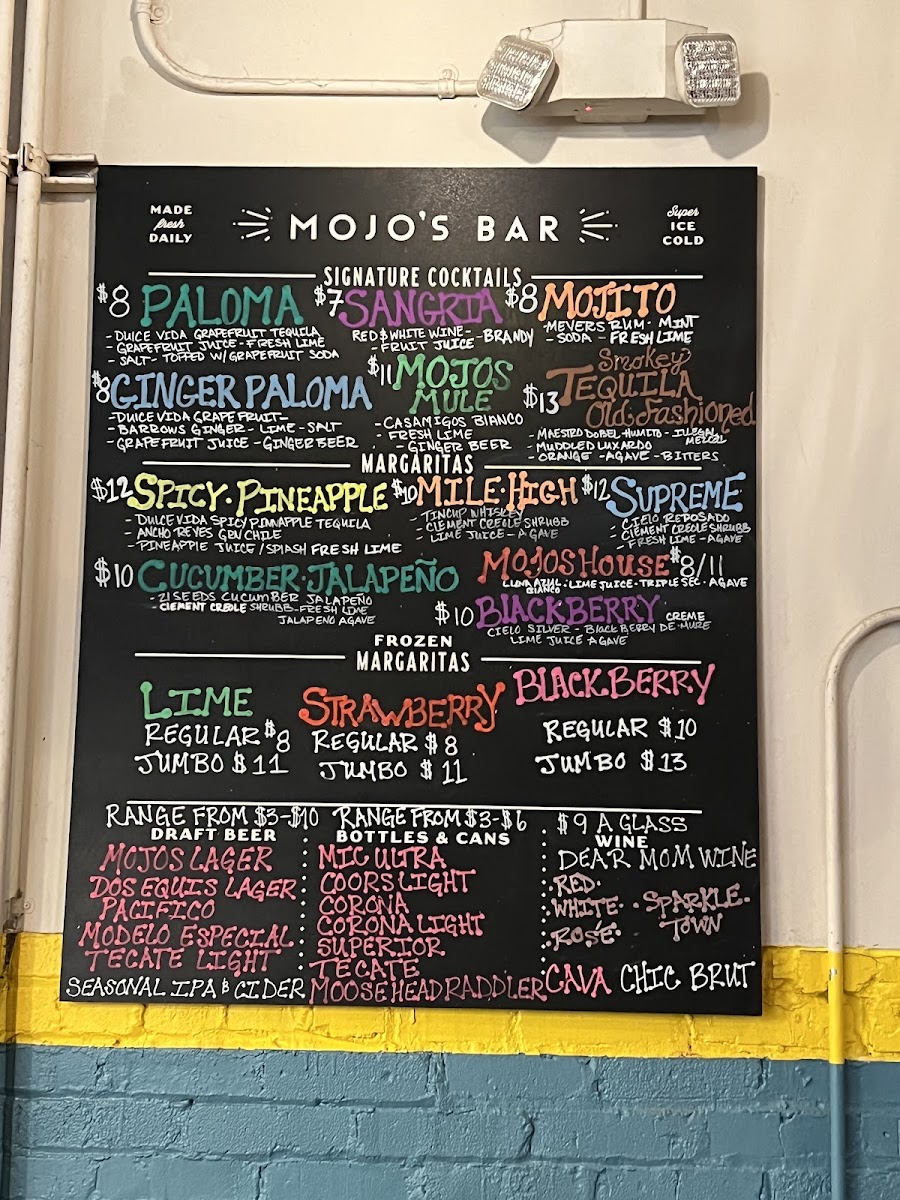 MADE
fresh
DAILY
MOJO'S BAR
Super
ICE
COLD
SIGNATURE COCKTAILS
$8 PALOMA
- DULCE VIDA GRAPEFRUIT TEQUILA
- GRAPEFRUIT JUICE - FRESH LIME
- SALT - TOPPED W/ GRAPEFRUIT SODA
$7 SANGRIA
RED & WHITE WINE - - BRANDY
- FRUIT JUICE
$8 MOJITO
- MEYERS RUM · MINT
- SODA - FRESH LIME
$8 GINGER PALOMA
- DULCE VIDA GRAPEFRUIT -
- BARROWS GINGER - LIME - SALT
- GRAPEFRUIT JUICE - GINGER BEER
$11 MOJOS
MULE
- CASAMIGOS BLANCO
- FRESH LIME
- GINGER BEER
Smokey
$13 TEQUILA
Old·Fashioned
- MAESTRO DOBEL HUMITO - ILLEGAL
MEZCAL
- MUDDLED LUXARDO
- ORANGE - AGAVE - BITTERS
MARGARITAS
$12 SPICY·PINEAPPLE
- DULCE VIDA SPICY PINNAPPLE TEQUILA
- ANCHO REYES GRN CHILE
- PINEAPPLE JUICE / SPLASH FRESH LIME
$10 MILE·HIGH
- TINCUP WHISKEY
- CLEMENT CREOLE SHRUBB
- LIME JUICE - AGAVE
$12 SUPREME
- CIELO REPOSADO
- CLEMENT CREOLE SHRUBB
- FRESH LIME - AGAVE
$10 CUCUMBER·JALAPEÑO
- 21 SEEDS CUCUMBER JALAPEÑO
- CLEMENT CREOLE SHRUBB - FRESH LIME
JALAPENO AGAVE
MOJOS HOUSE $8/11
LUNA AZUL · LIME JUICE · TRIPLE SEC · AGAVE
BLANCO
$10 BLACKBERRY CREME
CIELO SILVER - BLACKBERRY DE·MURE
LIME JUICE AGAVE
FROZEN
MARGARITAS
LIME
REGULAR $8
JUMBO $11
STRAWBERRY
REGULAR $8
JUMBO $11
BLACKBERRY
REGULAR $10
JUMBO $13
RANGE FROM $3-$10
DRAFT BEER
MOJOS LAGER
DOS EQUIS LAGER
PACIFICO
MODELO ESPECIAL
TECATE LIGHT
SEASONAL IPA & CIDER
RANGE FROM $3-$6
BOTTLES & CANS
MIC ULTRA
COORS LIGHT
CORONA
CORONA LIGHT
SUPERIOR
TECATE
MOOSEHEAD RADDLER
$9 A GLASS
WINE
DEAR MOM WINE
·RED·
·WHITE· ·SPARKLE·
·ROSE· TOWN
CAVA CHIC BRUT